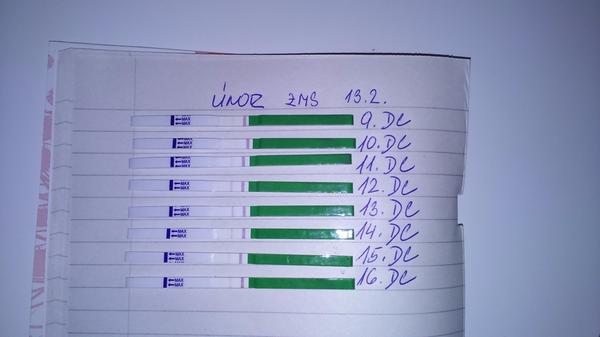 ÚNOR ZMS 13.2.
MAX MAX 9. DC
MAX MAX 10. DC
MAX MAX 11. DC
MAX MAX 12. DC
MAX MAX 13. DC
MAX MAX 14. DC
MAX MAX 15. DC
MAX MAX 16. DC